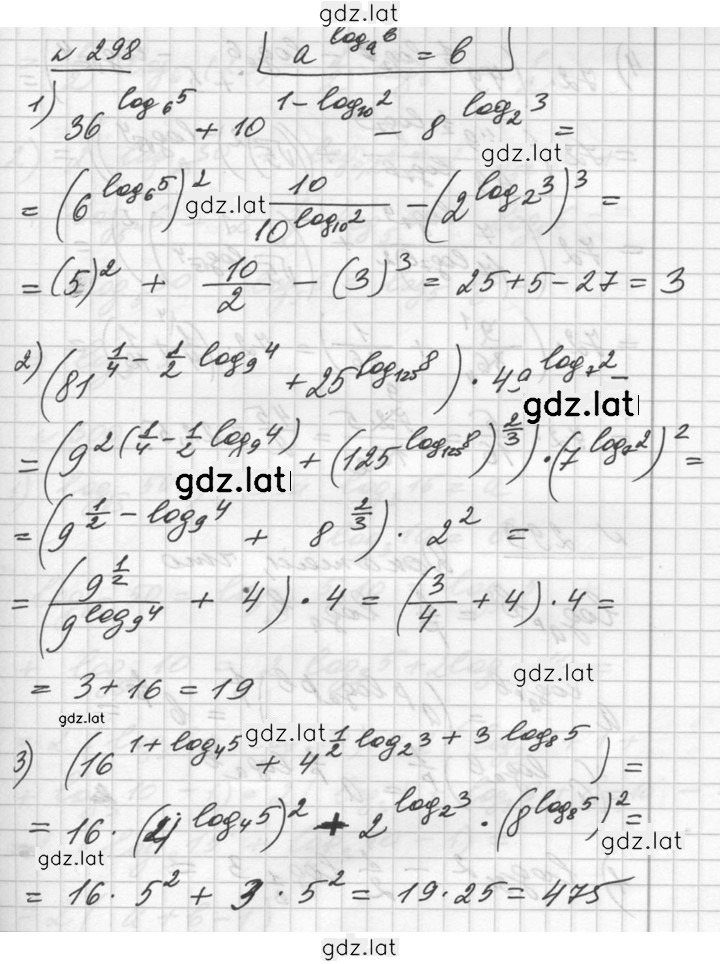 gdz.lat
№ 298 a^{log_a b} = b
1) 36^{log_6 5} + 10^{1 - log_10 2} - 8^{log_2 3} =
gdz.lat
= (6^{log_6 5})^2 gdz.lat 10/10^{log_10 2} - (2^{log_2 3})^3 =
= (5)^2 + 10/2 - (3)^3 = 25 + 5 - 27 = 3
2) (81^{1/4 - 1/2 log_9 4} + 25^{log_125 8}) · 49^{log_7 2} -
gdz.lat
= (9^{2(1/4 - 1/2 log_9 4)} + (125^{log_125 8})^{2/3}) · (7^{log_7 2})^2 =
gdz.lat
= (9^{1/2 - log_9 4} + 8^{2/3}) · 2^2 =
= (9^{1/2}/9^{log_9 4} + 4) · 4 = (3/4 + 4) · 4 =
= 3 + 16 = 19
gdz.lat
gdz.lat
3) (16^{1 + log_4 5} + 4^{1/2 log_2 3 + 3 log_8 5}) =
gdz.lat
= 16 · (4^{log_4 5})^2 + 2^{log_2 3} · (8^{log_8 5})^2 =
gdz.lat
gdz.lat
= 16 · 5^2 + 3 · 5^2 = 19 · 25 = 475
gdz.lat